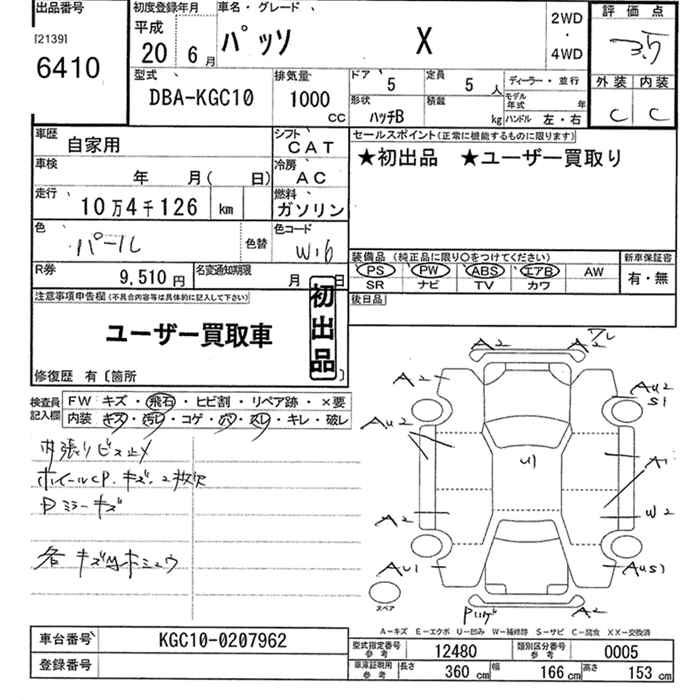 出品番号
[2139]
6410
初度登録年月
平成
20 6月
車名・グレード
パッソ X
2WD
・
4WD
評価点
3.5
外装 内装
C C
型式
DBA-KGC10
排気量
1000 CC
ドア 5
定員 5人
ディーラー・並行
形状 ハッチB
積載 kg
モデル年式 年
ハンドル 左・右
車歴 自家用
シフト CAT
車検 年 月( 日)
冷房 AC
走行 10万4千126 km
燃料 ガソリン
色 パール
色替
色コード W16
R券 9,510円
名変通知期限 月 日
セールスポイント(正常に機能するものに限ります)
★初出品 ★ユーザー買取り
装備品 (純正品に限り○をつけてください)
PS PW ABS エアB AW
SR ナビ TV カワ
新車保証書
有・無
後日品
注意事項申告欄(不具合内容等は具体的に記入して下さい)
ユーザー買取車
初出品
修復歴 有〔箇所 〕
検査員記入欄
FW キズ・飛石・ヒビ割・リペア跡・×要
内装 キズ・汚レ・コゲ・穴・スレ・キレ・破レ
内張りビス止メ
ホイールCP.キズ.2枚欠
ミラーキズ
各キズ
A2 A2
A2
AU2
S1
AU2
A1
U1
A2
W2
AU1
AUS1
A2
スペア
A-キズ E-エクボ U-凹み W-補修跡 S-サビ C-腐食 XX-交換済
車台番号 KGC10-0207962
登録番号
型式指定番号 参考 12480
類別区分番号 参考 0005
車庫証明用 参考 長さ 360 cm 幅 166 cm 高さ 153 cm